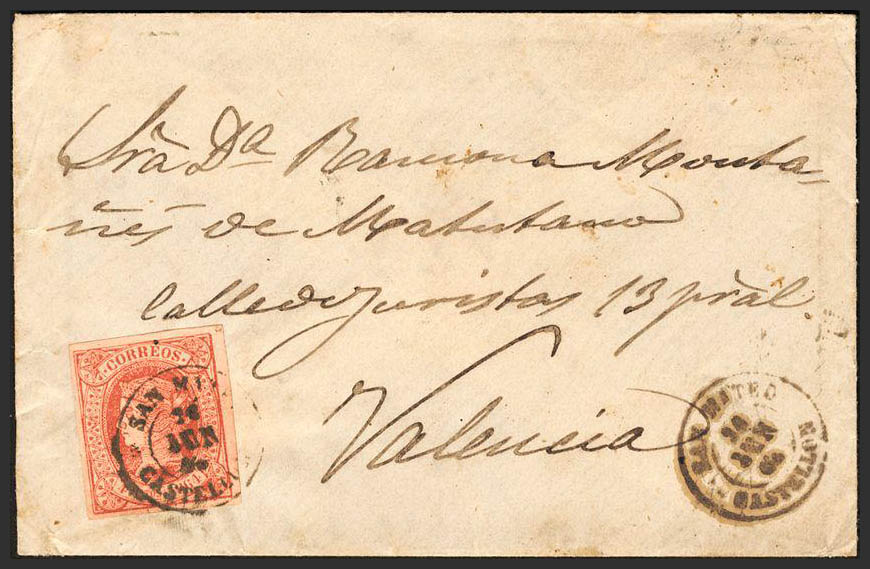 Srā Dª Ramona Monta-
ñés de Matutano
Calle de Juristas 13 prāl
Valencia
CORREOS
SAN M
JUN
CASTEL
MATEO
JUN
CASTELLON